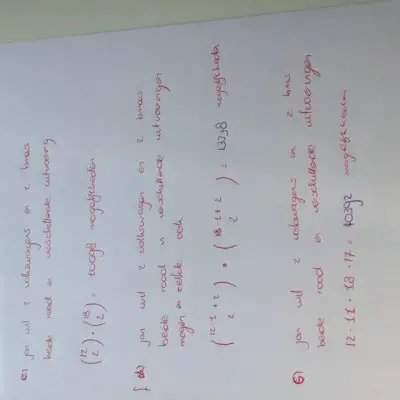 e) jan wil 2 volkswagens en 2 bmws
beide rood en verschillende uitvoering
(12 2) · (18 2) = 10098 mogelijkheden
f) jan wil 2 volkswagens en 2 bmws
beide rood in verschillende uitvoeringen
mogen in zelfde ook
(12-1+2 2) * (18-1+2 2) = 13338 mogelijkheden
6) jan wil 2 volkswagens en 2 bmws
beide rood en verschillende uitvoeringen
12·11·18·17= 40392 mogelijkheden